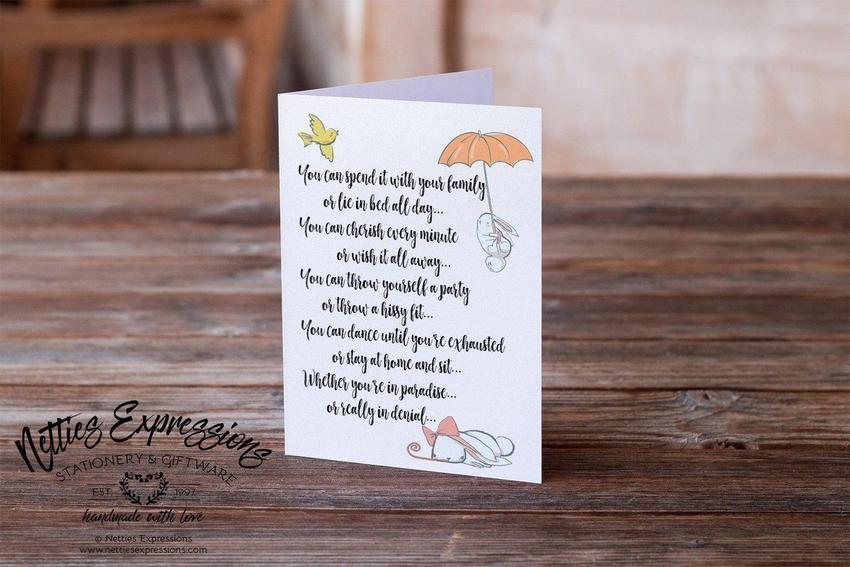 You can spend it with your family
or lie in bed all day...
You can cherish every minute
or wish it all away...
You can throw yourself a party
or throw a hissy fit...
You can dance until you're exhausted
or stay at home and sit...
Whether you're in paradise...
or really in denial...
Netties Expressions
STATIONERY & GIFTWARE
EST 1997
handmade with love
© Netties Expressions
www.nettiesexpressions.com